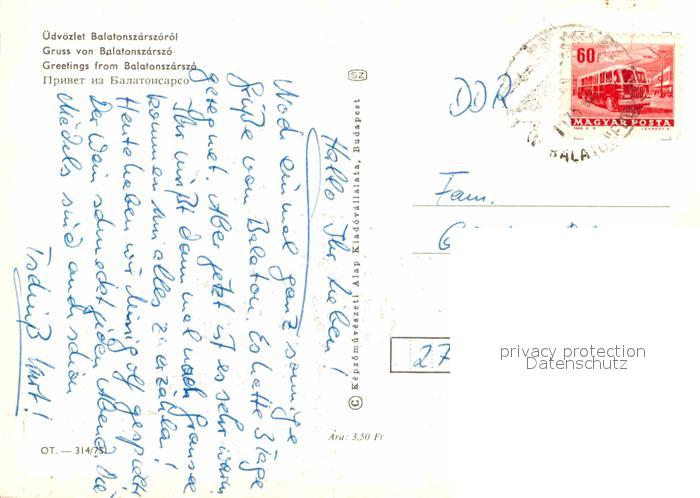 Üdvözlet Balatonszárszóról
Gruss von Balatonszárszó
Greetings from Balatonszárszó
Привет из Балатонсарсо
SZ
60f
MAGYAR POSTA
BALATON
DDR
Fam.
G
27
privacy protection
Datenschutz
Hallo Ihr Lieben!
Noch einmal ganz sonnige
Grüße vom Balaton. Es hatte 3 Tage
geregnet. Aber jetzt ist es sehr warm
Ihr müßt dann mal nach Gransee
kommen um alles zu erzählen!
Heute haben wir Minigolf gespielt
Der Wein schmeckt jeden Abend. Die
Mädels sind auch schön
Tschüß Kurt!
© Képzőművészeti Alap Kiadóvállalata, Budapest
Ára: 3,50 Ft
OT. — 314/751